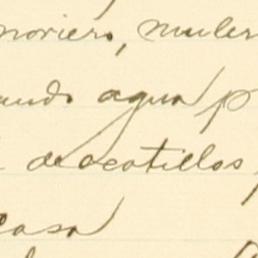 noriero, muler
ando agua p
de ocotillos
casa